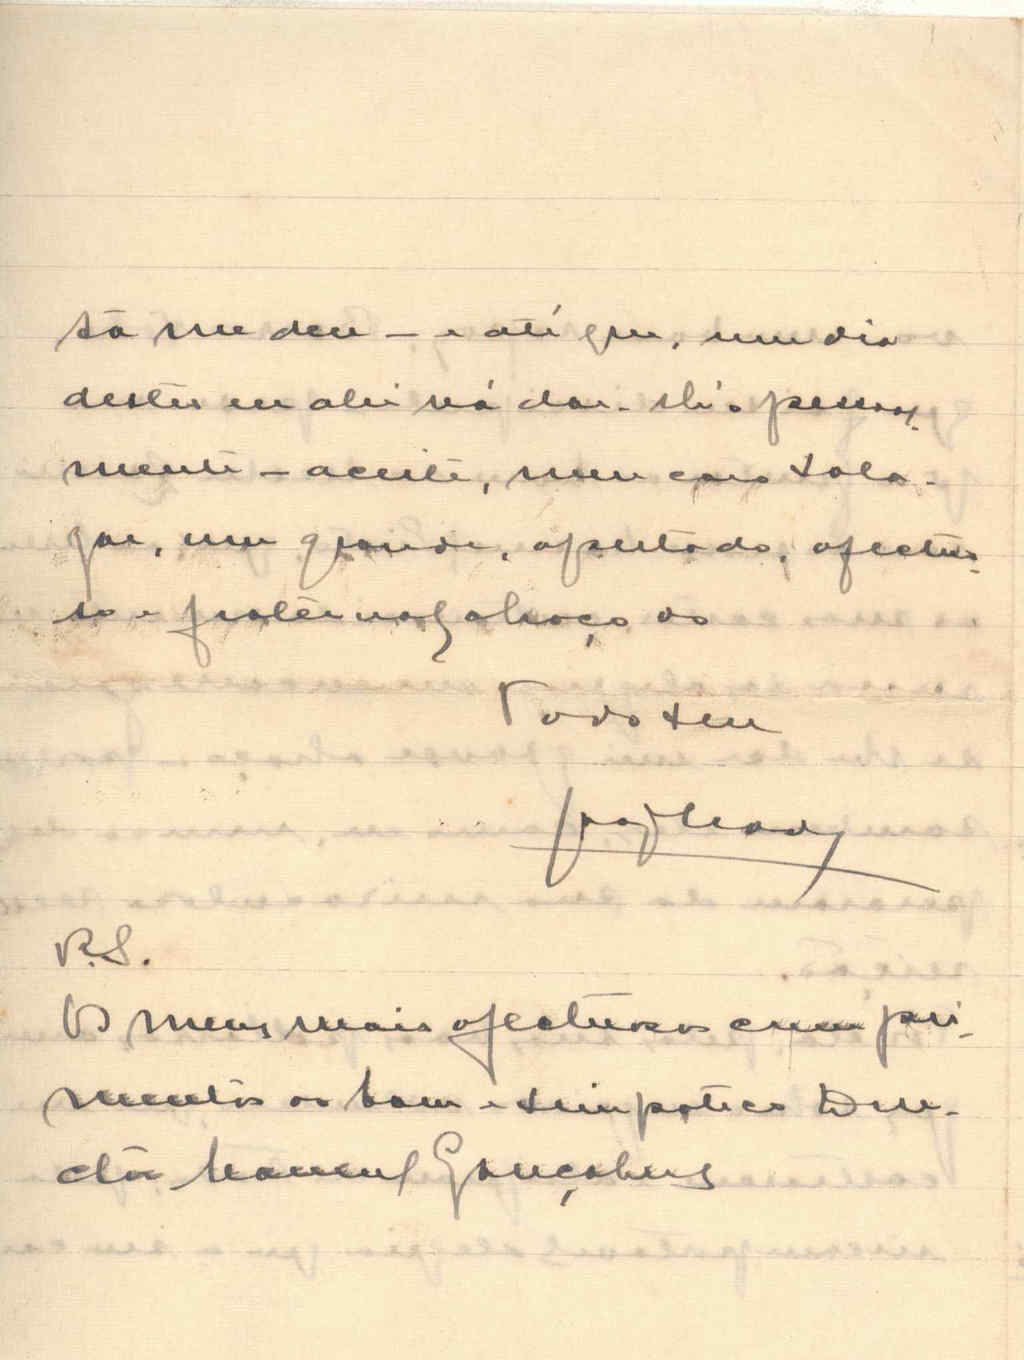 ta me deu — e até que, num dia
destes eu ahi vá dar-lh'o pessoal-
mente — aceite, meu caro Sala-
zar, um grande, apertado, afectuo-
so e fraternal abraço do
Todo seu
P.S.
Os meus mais afectuosos cumpri-
mentos ao bom e simpatico Dou-
ctor Manuel Gonçalves